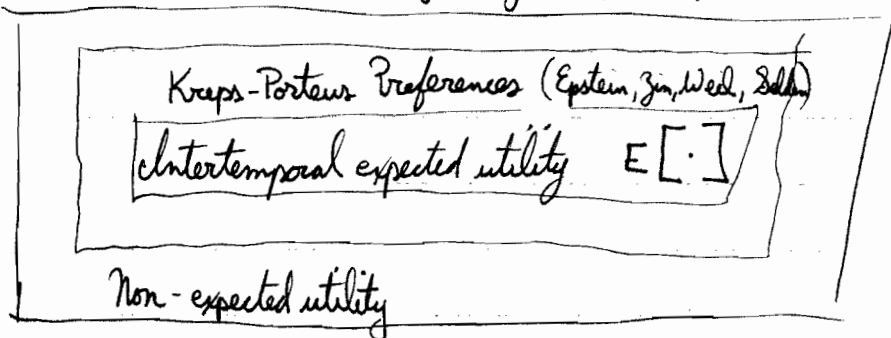 Kreps-Porteus Preferences (Epstein, Zin, Weil, Selden)
Intertemporal expected utility E[·]
Non-expected utility